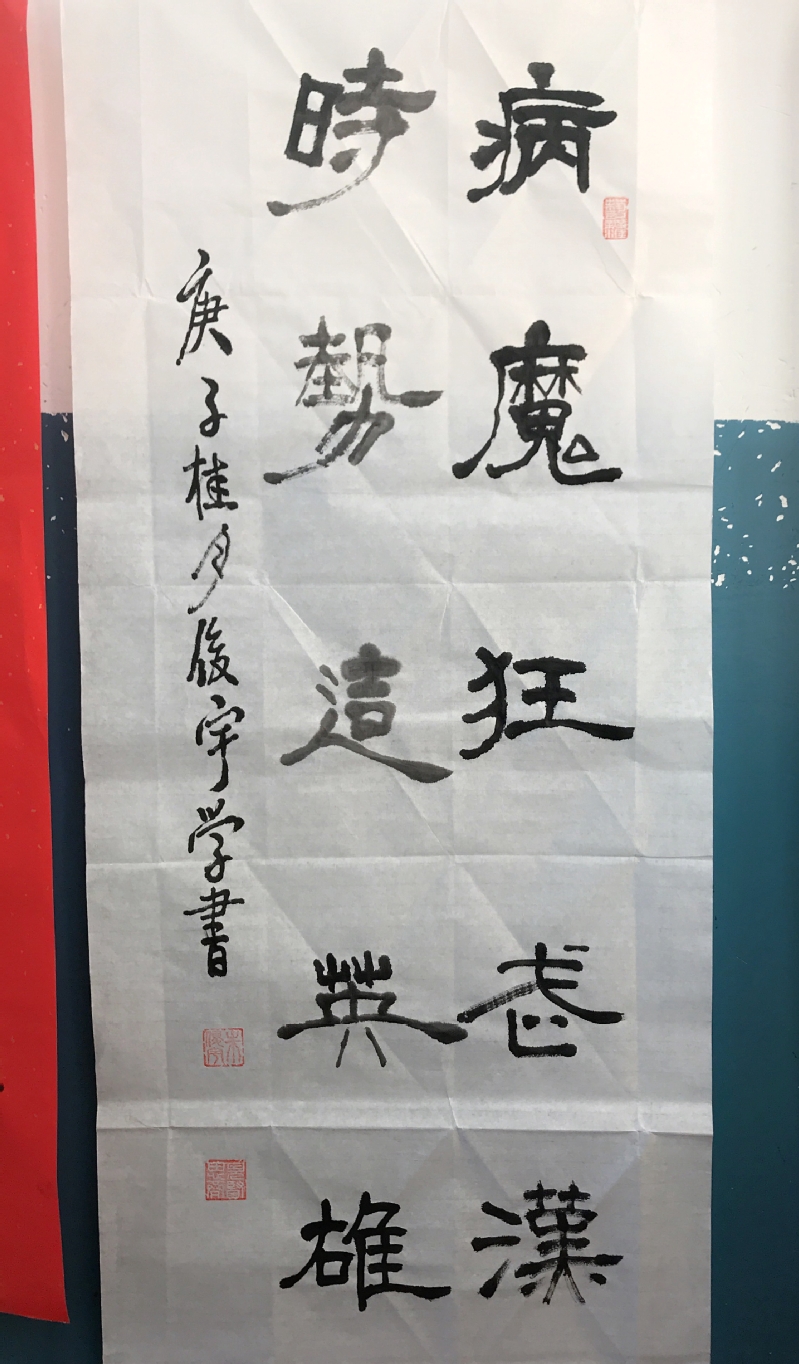 病魔狂武漢
時勢造英雄
庚子桂月俊宇学書